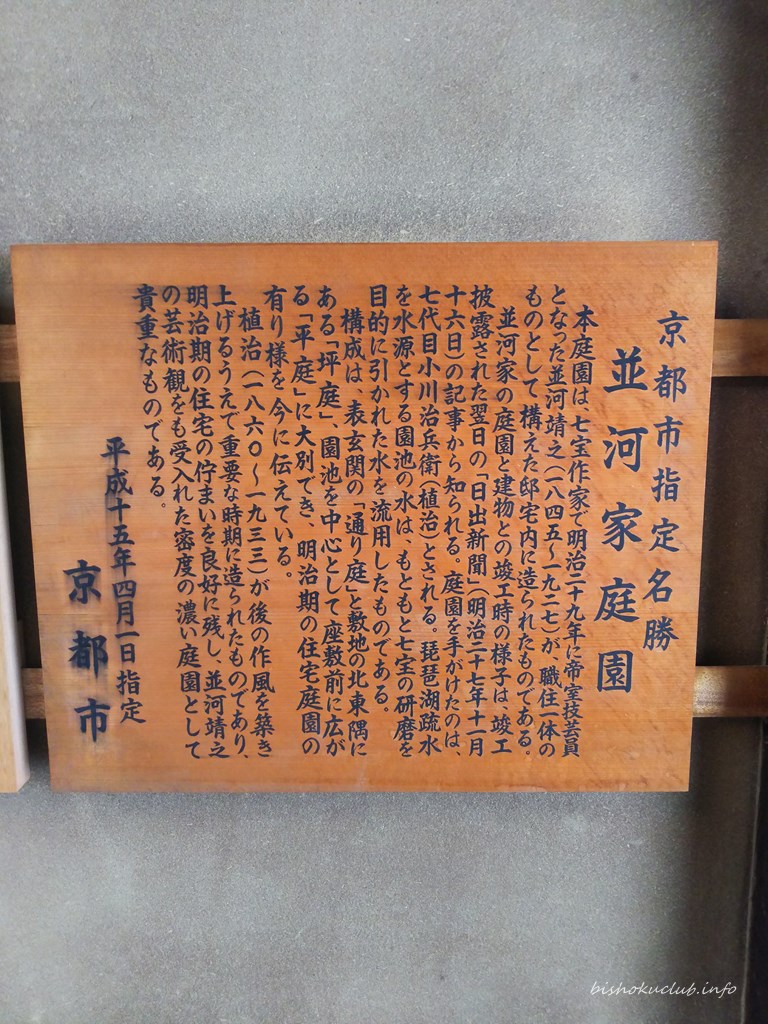 京都市指定名勝
並河家庭園
本庭園は、七宝作家で明治二十九年に帝室技芸員
となった並河靖之（一八四五～一九二七）が、職住一体の
ものとして構えた邸宅内に造られたものである。
並河家の庭園と建物との竣工時の様子は、竣工
披露された翌日の「日出新聞」（明治二十七年十一月
十六日）の記事から知られる。庭園を手がけたのは、
七代目小川治兵衛（植治）とされる。琵琶湖疏水
を水源とする園池の水は、もともと七宝の研磨を
目的に引かれた水を流用したものである。
構成は、表玄関の「通り庭」と敷地の北東隅に
ある「坪庭」、園池を中心として座敷前に広が
る「平庭」に大別でき、明治期の住宅庭園の
有り様を今に伝えている。
植治（一八六〇～一九三三）が後の作風を築き
上げるうえで重要な時期に造られたものであり、
明治期の住宅の佇まいを良好に残し、並河靖之
の芸術観をも受入れた密度の濃い庭園として
貴重なものである。
平成十五年四月一日指定
京都市
bishokuclub.info